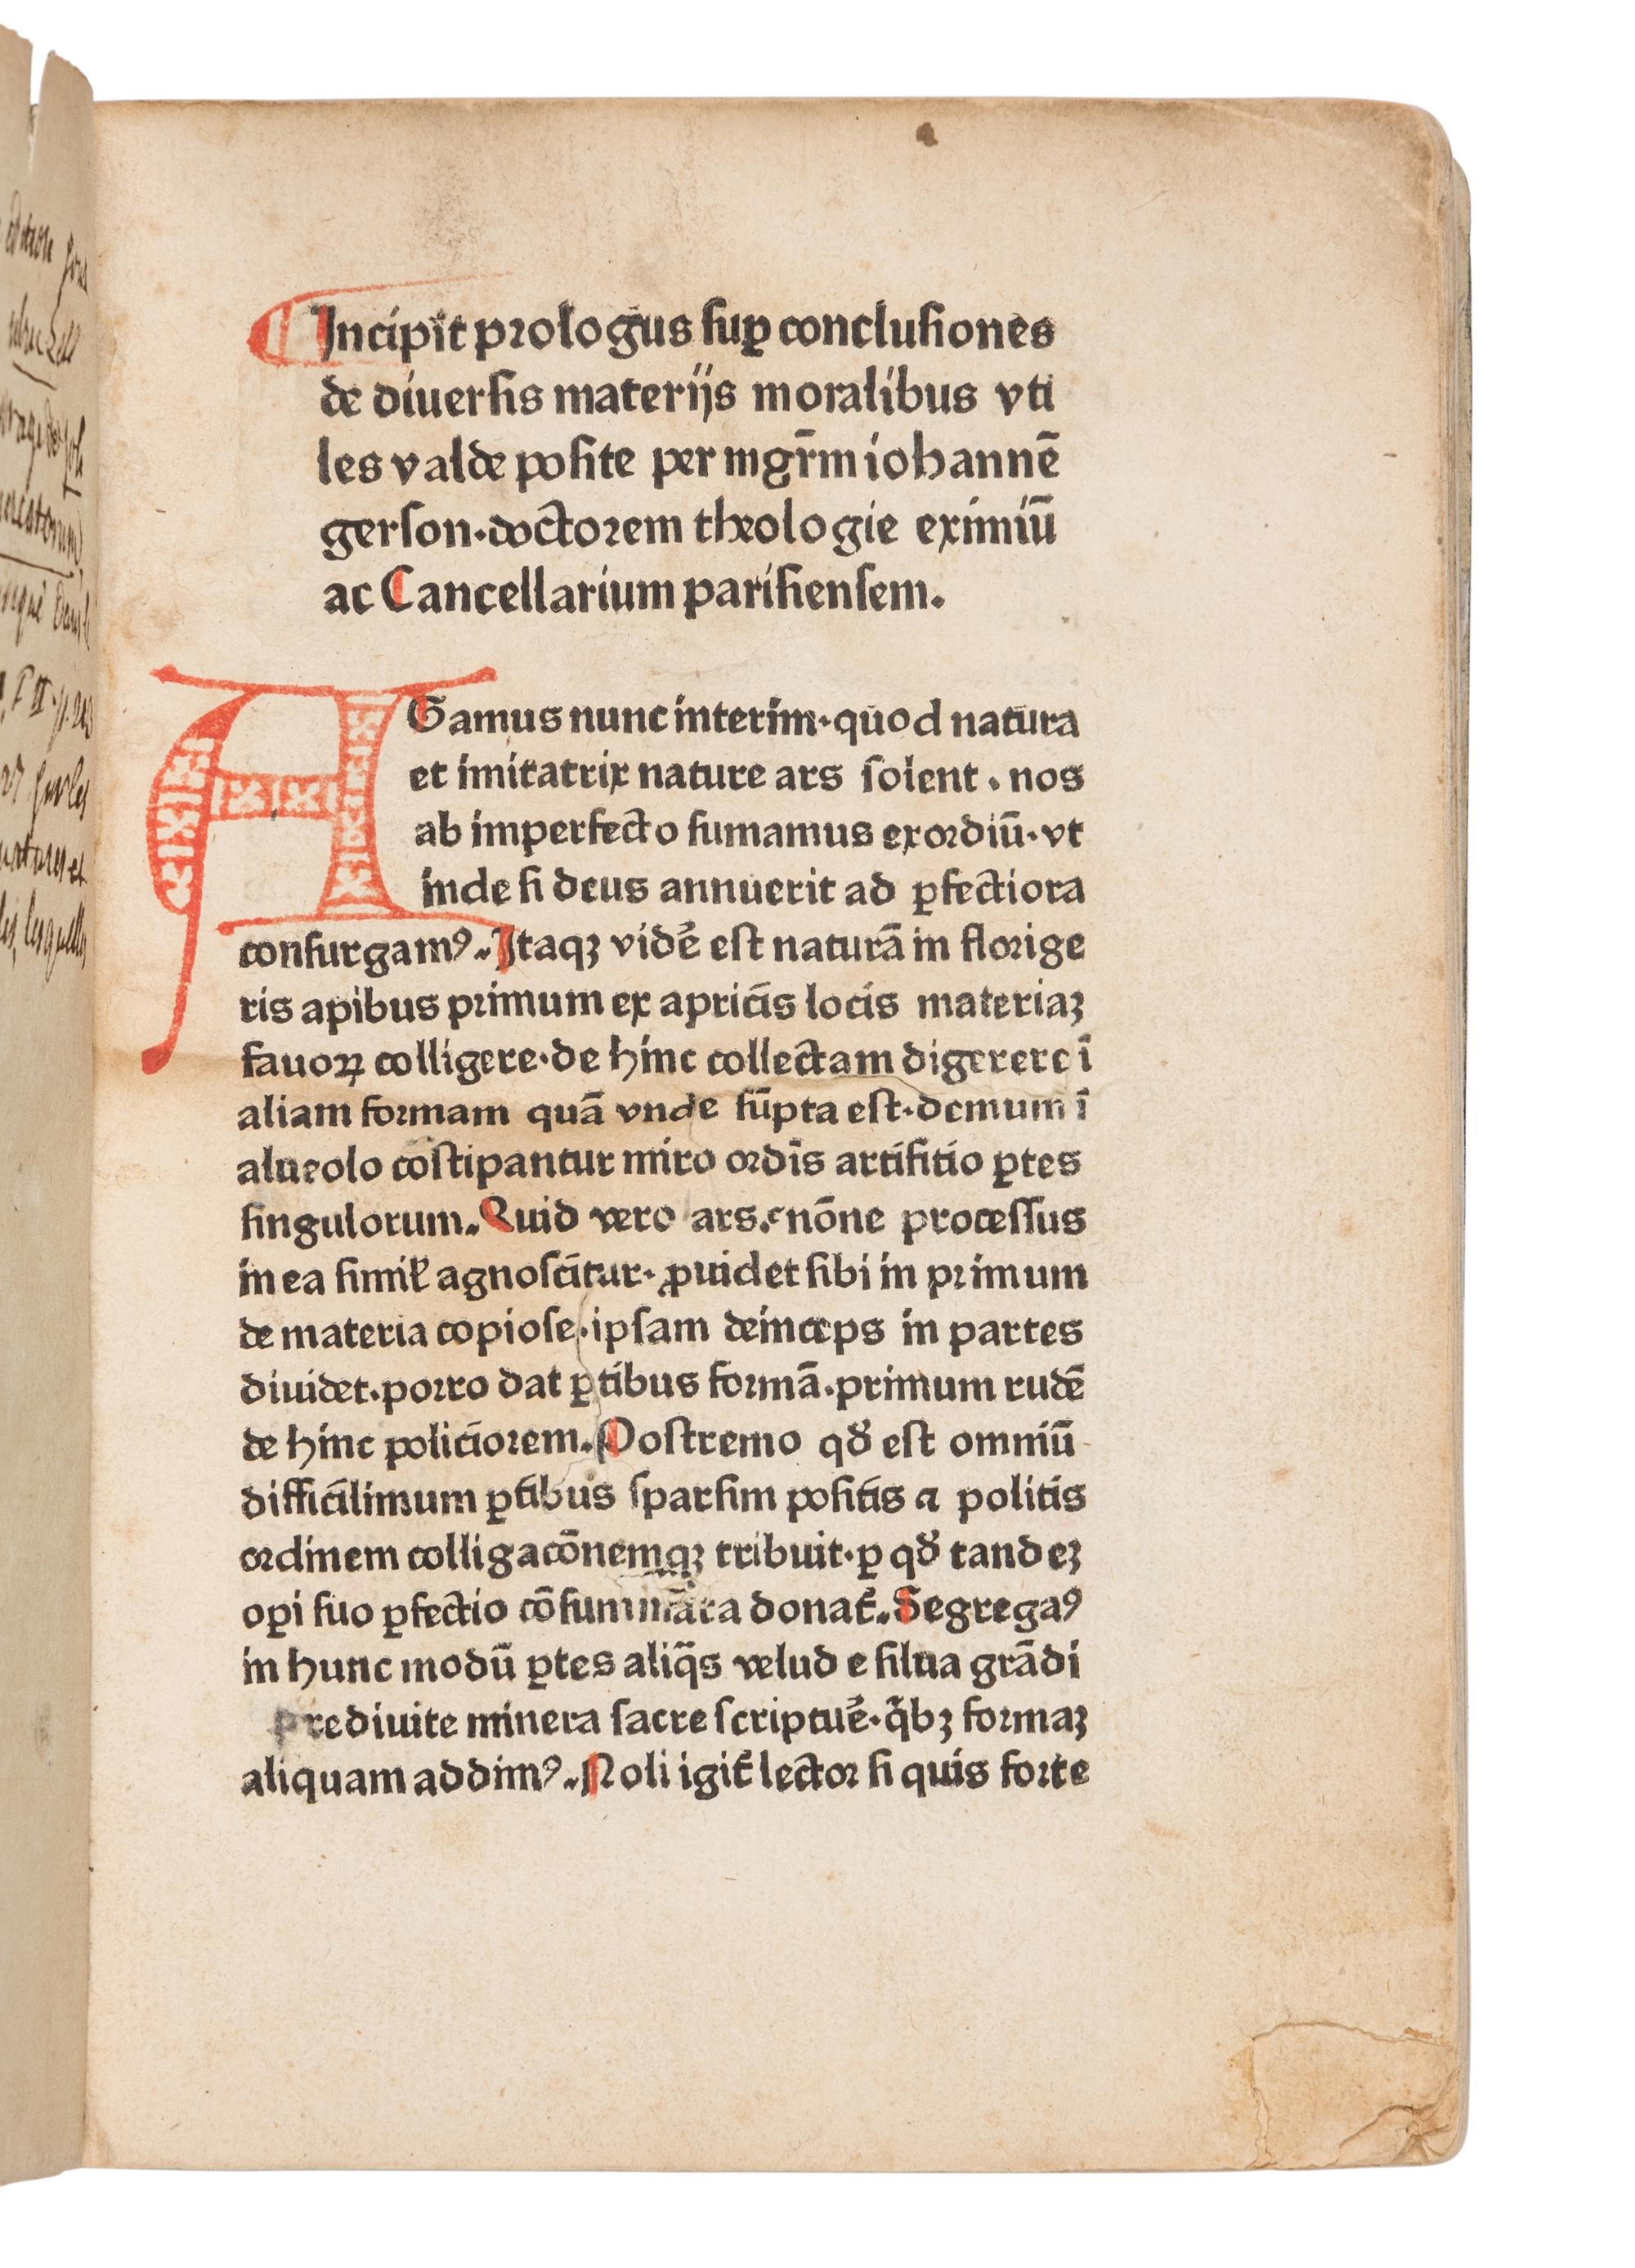 Incipit prologus suꝑ conclusiones
de diuersis materijs moralibus vti
les valde posite per mgr̄m iohannē
gerson·doctorem theologie eximiū
ac Cancellarium parisiensem.
AGamus nunc interim·quod natura
et imitatrix nature ars solent·nos
ab imperfecto sumamus exordiū·vt
inde si deus annuerit ad ꝑfectiora
consurgamꝰ.Itaqꝫ vidē est naturā in florige
ris apibus primum ex apricis locis materiaꝫ
fauoꝝ colligere·de hinc collectam digerere ī
aliam formam quā vnde sūpta est·demum ī
alueolo cōstipantur miro ordīs artifitio ꝑtes
singulorum.Quid vero ars.nōne processus
in ea simił agnoscitur·ꝓuidet sibi in primum
de materia copiose·ipsam deinceps in partes
diuidet·porro dat ꝑtibus formā·primum rudē
de hinc policiorem.Postremo qđ est omniū
difficilimum ꝑtibus sparsim positis a politis
ordinem colligacōnemqꝫ tribuit·ꝑ qđ tandeꝫ
oꝑi suo ꝑfectio cōsummata donat̄.Segregaꝰ
in hunc modū ꝑtes aliq̄s velud e silua grādi
prediuite minera sacre scriptuē·q̄bꝫ formaꝫ
aliquam addimꝰ.Noli igit̄ lector si quis forte